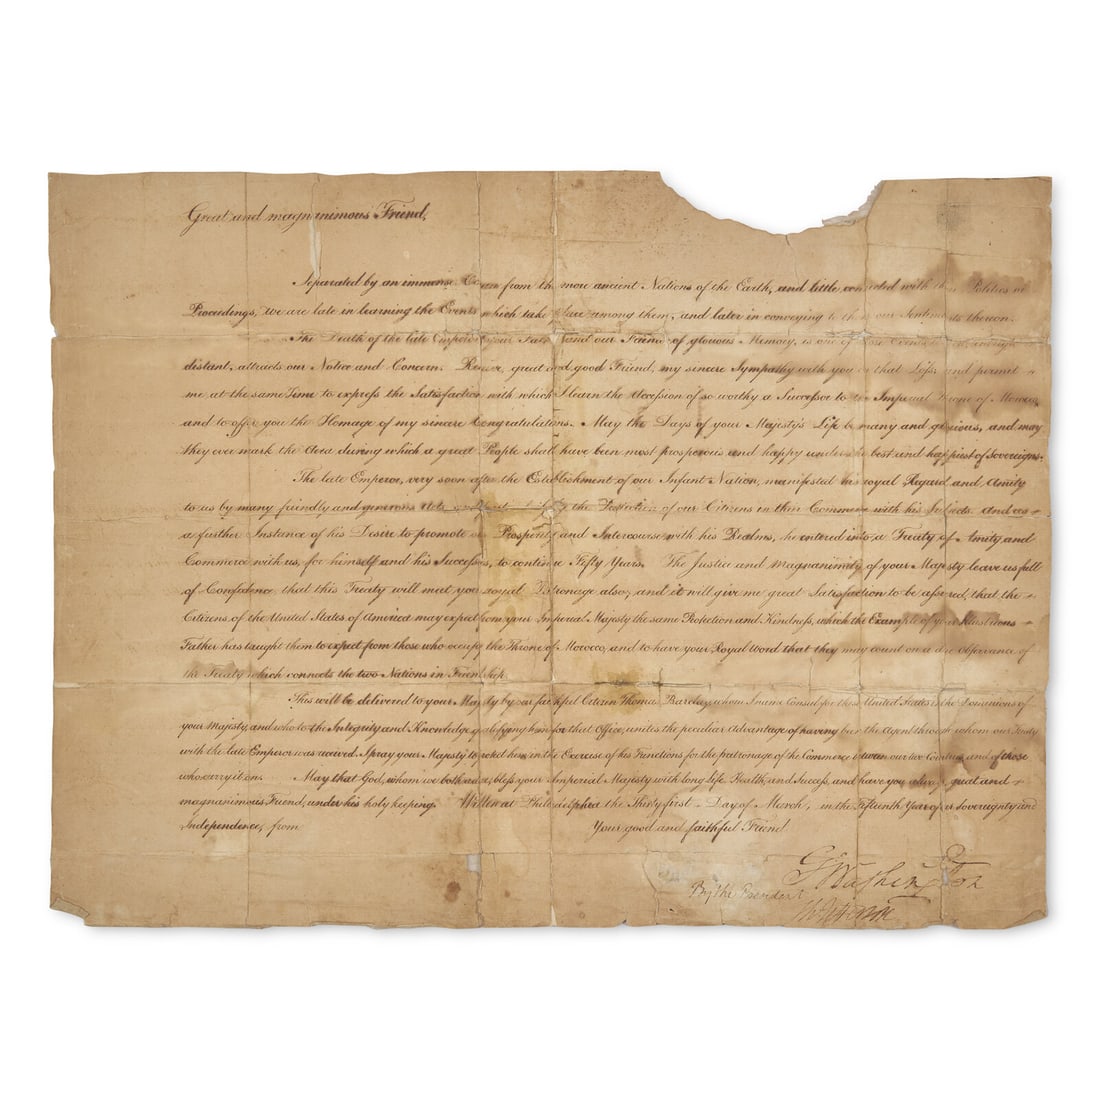 Great and magnanimous Friend,
Separated by an immense Ocean from the more ancient Nations of the Earth, and little connected with their Politics or
Proceedings, we are late in learning the Events which take place among them, and later in conveying to them our Sentiments thereon.
The Death of the late Emperor your Father and our Friend of glorious Memory, is one of those Events which, though
distant, attracts our Notice and Concern. Receive, great and good Friend, my sincere Sympathy with you on that Loss; and permit
me at the same Time to express the Satisfaction with which I learn the Accession of so worthy a Successor to the Imperial Throne of Morocco,
and to offer you the Homage of my sincere Congratulations. May the Days of your Majesty's Life be many and glorious, and may
they ever mark the Aera during which a great People shall have been most prosperous and happy under the best and happiest of Sovereigns.
The late Emperor, very soon after the Establishment of our Infant Nation, manifested his royal Regard and Amity
to us by many friendly and generous Acts and the Protection of our Citizens in their Commerce with his Subjects. And as
a further Instance of his Desire to promote our Prosperity and Intercourse with his Realms, he entered into a Treaty of Amity and
Commerce with us, for himself and his Successors, to continue Fifty Years. The Justice and Magnanimity of your Majesty leave us full
of Confidence that this Treaty will meet your royal Patronage also; and it will give me great Satisfaction to be assured, that the
Citizens of the United States of America may expect from your Imperial Majesty the same Protection and Kindness, which the Example of your Illustrious
Father has taught them to expect from those who occupy the Throne of Morocco, and to have your Royal Word that they may count on a due Observance of
the Treaty which connects the two Nations in Friendship.
This will be delivered to your Majesty by our faithful Citizen Thomas Barclay, whom I name Consul for these United States in the Dominions of
your Majesty, and who to the Integrity and Knowledge qualifying him for that Office, unites the peculiar Advantage of having been the Agent through whom our Treaty
with the late Emperor was received. I pray your Majesty to protect him in the Exercise of his Functions for the patronage of the Commerce between our two Countries, and of those
who carry it on. May that God, whom we both adore, bless your Imperial Majesty with long Life, Health, and Success, and have you always, great and
magnanimous Friend, under his holy keeping. Written at Philadelphia the Thirty first Day of March, in the Fifteenth Year of our Sovereignty and
Independence, from
Your good and faithful Friend
G Washington
By the President
Th Jefferson